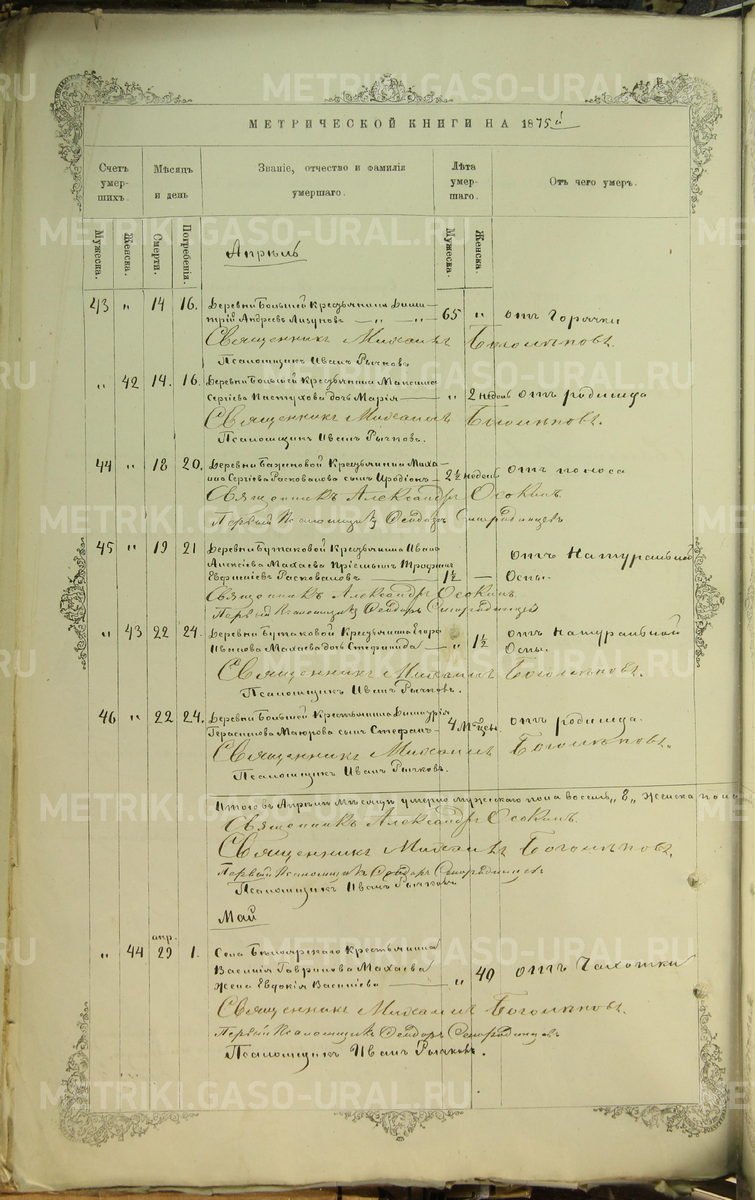 METRIKI.GASO-URAL.RU
МЕТРИЧЕСКОЙ КНИГИ НА 1875й
Счетъ умер-шихъ.
Мѣсяцъ и день
Званіе, отчество и фамилія умершаго.
Лѣта умер-шаго.
Отъ чего умеръ.
Мужеска.
Женска.
Смерти.
Погребенія.
Мужеска.
Женска.
Апрѣль
43 " 14 16. Деревни Большей Крестьянинъ Дими-
трій Андреевъ Лизуновъ — " — " 65 " отъ Горячки
Священникъ Михаилъ Боголѣповъ.
Псаломщикъ Иванъ Рычковъ
" 42 14. 16. Деревни Большей Крестьянина Максима
Сергѣева Пастухова дочь Марія — " 2 недѣль отъ родимца
Священникъ Михаилъ Боголѣповъ.
Псаломщикъ Иванъ Рычковъ.
44 " 18 20. Деревни Баженовой Крестьянина Миха-
ила Сергѣева Расковалова сынъ Иродіонъ — 2½ недѣли отъ поноса
Священникъ Александръ Осокинъ
Первый Псаломщикъ Ѳеодоръ
45 " 19 21 Деревни Бутаковой Крестьянина Ивана
Алексѣева Махаева пріемышъ
Расковаловъ — 1½ — отъ Натуральной
Оспы.
Священникъ Александръ Осокинъ
Первый Псаломщикъ Ѳеодоръ
" 43 22 24. Деревни Бутаковой Крестьянина Егора
Иванова Махаева дочь Стефанида — " 1½ отъ натуральной
Оспы.
Священникъ Михаилъ Боголѣповъ.
Псаломщикъ Иванъ Рычковъ.
46 " 22 24. Деревни Большей Крестьянина Димитрія
Герасимова Маюрова сынъ Стефанъ — 4 мѣсяцы отъ родимца.
Священникъ Михаилъ Боголѣповъ.
Псаломщикъ Иванъ Рычковъ.
Итого въ Апрѣлѣ мѣсяцѣ умерло мужескаго пола восемь "8" женска пола
Священникъ Александръ Осокинъ
Священникъ Михаилъ Боголѣповъ.
Первый Псаломщикъ Ѳеодоръ
Псаломщикъ Иванъ Рычковъ
Май
апр.
" 44 29 1. Села Бѣлоярскаго Крестьянина
Василія Гаврилова Махаева
жена Евдокія Василіева — " 49 отъ Чахотки
Священникъ Михаилъ Боголѣповъ.
Первый Псаломщикъ Ѳеодоръ
Псаломщикъ Иванъ Рычковъ.